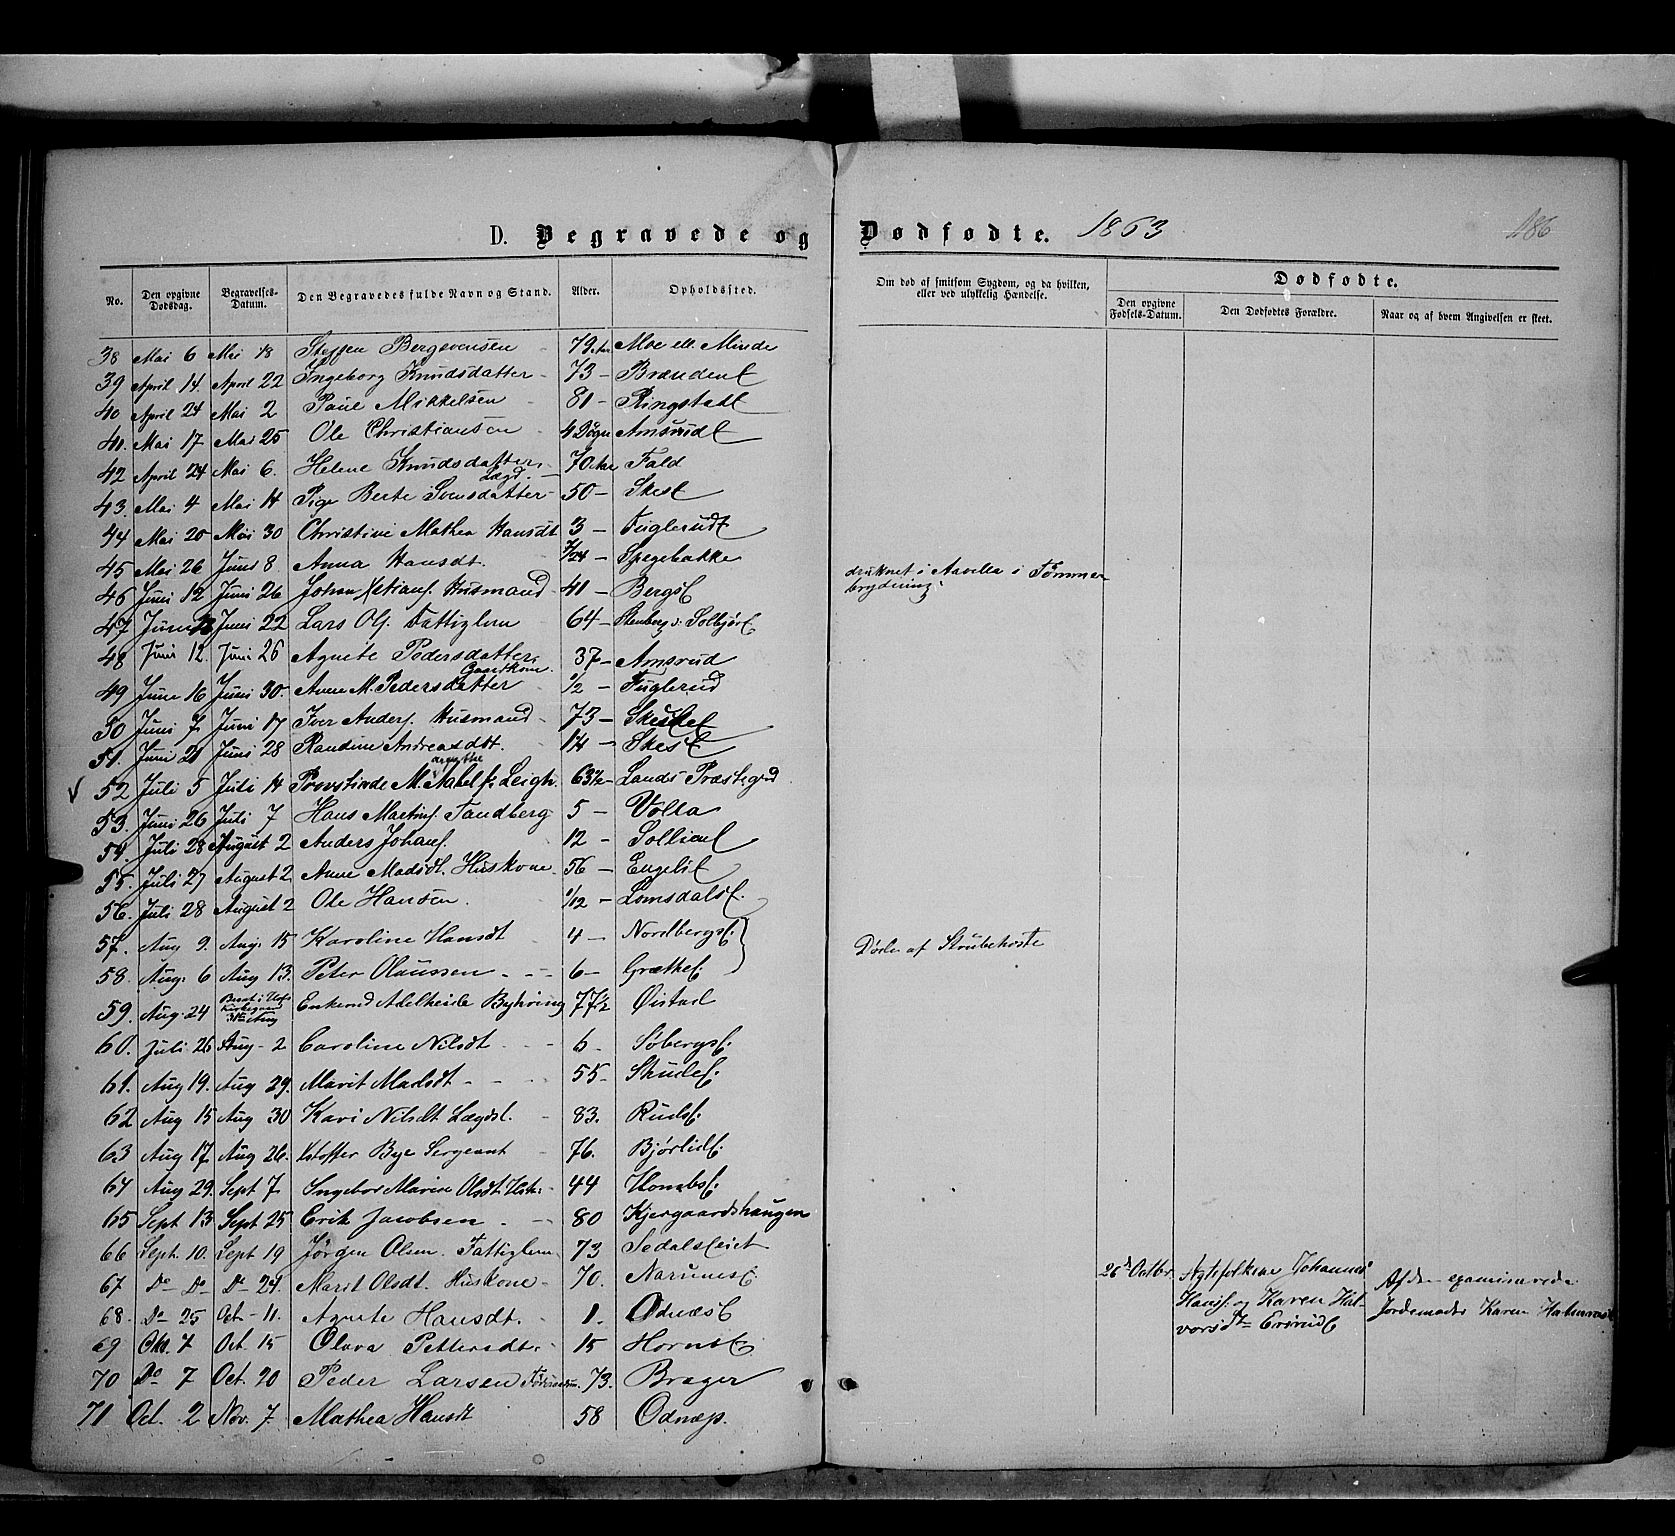 D. Begravede og Dødfødte. 1863
186
No. Den opgivne Dødsdag. Begravelses-Datum. Den Begravedes fulde Navn og Stand. Alder. Opholdssted. Om død af smitsom Sygdom, og da hvilken, eller ved ulykkelig Hændelse. Dødfødte.
Den opgivne Fødsels-Datum. Den Dødfødtes Forældre. Naar og af hvem Angivelsen er skeet.
38 Mai 6 Mai 18 Steffen Bergsvensen 79 Aar Moe ell. Minde
39 April 14. April 22 Ingeborg Knudsdatter - 73 - Brændenl
40 April 24 Mai 2 Paul Mikkelsen 81 - Ringstadl
41. Mai 17 Mai 25 Ole Christiansen 4 Døgn Amsrudl
42 April 24 Mai 6. Helene Knudsdatter Lægd. 70 Aar Fald
43. Mai 4 Mai 14 Pige Berte Svensdatter - 50 - Skesl
44 Mai 20 Mai 30 Christine Mathea Hansdt 3 - Fuglerudt
45 Mai 26 Juni 8. Anna Hansdt. - Spegebakke
46 Juni 12 Juni 26 Johan Xstians. Husmand 41 - Bergsl druknet i Aavella i Tømmerbrydning
47 Juni 13 Juni 22 Lars Ols. Fattiglem 64 - Stenberg v. Solbjørl
48 Juni 12. Juni 26 Agnete Pedersdatter Gaardkone. 37 - Amsrud
49 Juni 16 Juni 30. Anne M. Pedersdatter 1/2 - Fuglerud
50 Juni 7 Juni 17 Iver Anders. Husmand - 73 - Skeslet
51. Juni 21 Juni 28 Randine Andreasdt. 14 - Skesl
52 Juli 5 Juli 14 Provstinde M. Agathe Aabel f. Leigh. 63½ - Lands Præstegrd
53. Juni 26 Juli 7 Hans Martins. Tandberg 5 - Volla
54. Juli 28 August 2 Anders Johans. 12 - Sollienl
55. Juli 27 August 2 Anne Madsdt. Huskone. 56 - Engelil
56. Juli 28 August 2 Ole Hansen. 1/12 - Lomsdalsl.
57. Aug 9. Aug. 15 Karoline Hansdt 4 - Nordbergsl. Døde af Strubehoste
58. Aug. 6 Aug 13. Peter Olaussen - - - 6 - Græthel.
59. Aug. 24 31te Aug Enkefrud Adelheide Byhring 77½ Øistad
60. Juli 26 Aug - 2 Caroline Nilsdt - - - 6 - Søbergsl.
61. Aug 19. Aug 29. Marit Madsdt - - - 55 - Skudel.
62 Aug 15 Aug 30 Kari Nilsdt Lægdsl. - 83. Rudsl.
63 Aug 17 Aug 26. Xstoffer Bye Sergeant - 76. Bjørlidl.
64 Aug 29. Sept 7 Ingebor Marie Olsdt. Husk. - 44 Hombsl.
65 Sept 13 Sept 25 Erik Jacobsen - - - 80 Kjergaardshaugen
66 Sept. 10. Sept 19 Jørgen Olsen. Fattiglem 73 Sedalseiet
67 Do - Do - Do - 24. Marit Olsdt. Huskone - 70. Narumsl.
68. Do - 25 Oct - 11. Agnete Hansdt. - 1. Odnæsl
26d Octbr. Ægtefolkene Johannes Hans. og Karen Halvorsdt Af den examinerede Jordemoder Karen
69 Okt. 7 Oct. 15 Olava Pettersdt. - 15 Hornsl
70 Do 7 Oct. 20 Peder Larsen 73. Brager
71 Oct. 2 Nov. 7. Mathea Hansdt 58 Odnæs.